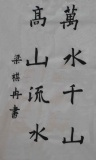 萬水千山
高山流水
梁祺冉書